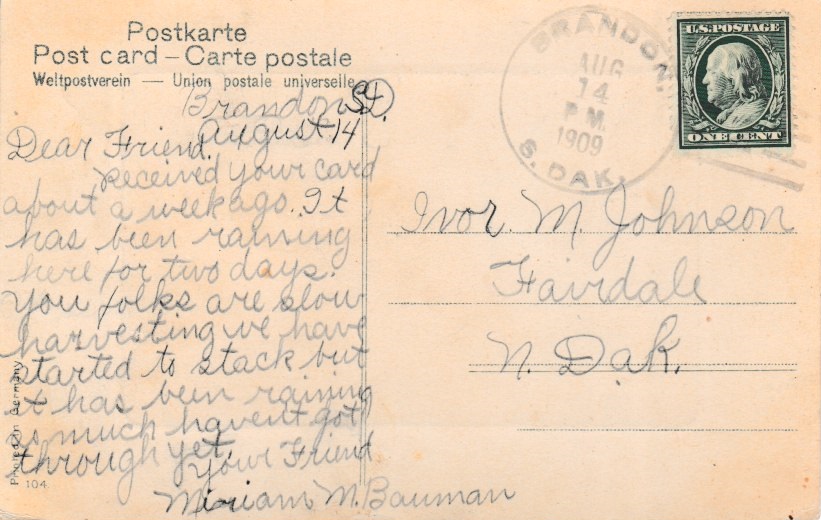 Postkarte
Post card – Carte postale
Weltpostverein — Union postale universelle
Brandon S.D.
August 14
Dear Friend.
Received your card
about a week ago. It
has been raining
here for two days.
You folks are slow
harvesting we have
started to stack but
it has been raining
so much havent got
through yet.
Your Friend
Miriam M. Bauman
Printed in Germany
104
BRANDON,
AUG
14
P.M.
1909
S. DAK.
U.S. POSTAGE
ONE CENT
Ivor. M. Johnson
Fairdale
N. Dak.